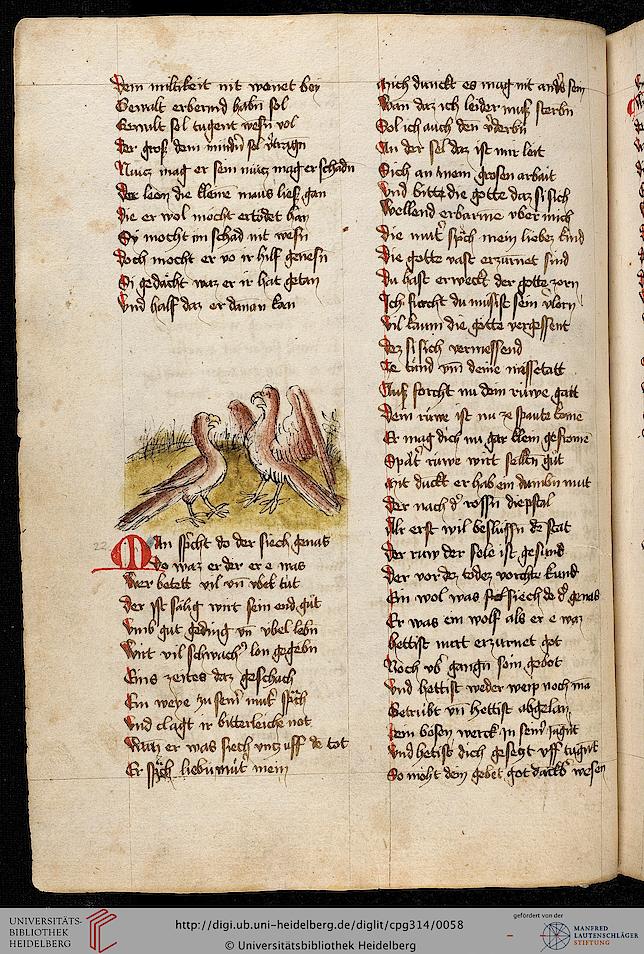 Dem miltikeit nit wonet bey
Gewalt erbermd habn sol
Gewalt sol tugent wesn vol
Der groß dem mindn sol vertragn
Nucz mag er sein nucz mag er schadn
Der leon die kleine maus ließ gan
die er wol mocht ertödet han
Sy mocht im schad nit wesn
Doch mocht er vo ir hilf genesn
Si gedächt waz er ir hat getan
Vnd half daz er danan kan
22
Man spricht do der siech genas
Do waz er der er e was
Wer betett vil vn vbel tut
Der ist sälig wirt sein end gut
Vmb gut geding vn vbel lebn
Wirt vil schwach lon gegebn
Eins zeites daz geschach
Ein weye zu seinr mutr sprach
Vnd clagt ir bitterleiche not
Wan er was siech vncz vff de tot
Er sprach liebu mut mein
Mich dunckt es mag nit anders sein
Wan daz ich leider muß sterbn
Sol ich auch den verderbn
An der sel daz ist mir leit
Sich an mein grosen arbait
Vnd bitt die gotte daz si sich
Wellend erbarme vber mich
Die mutr sprach mein liebez kind
Die gotte vast erzürnet sind
Du hast erweckt der gotte zorn
Ich fürcht du müsist sein vlorn
Vil kaum die gotte vergessent
Dez si sich vermessend
Ze tand vm deine missetatt
Auß forcht nu dein rüwe gatt
Dein rüwe ist nu ze spaute kome
Er mag dich nu gar klein gefrome
Spät rüwe wirt selten gut
Mit duckt er hab ein dumbn mut
Der nach der rossn diepstal
Alr erst wil beslüssn de stal
Der ruw der sele ist gesund
Der vor dez todez vorchte kund
Ein wol was siech do der genas
Er was ein wolf als er e waz
hettist nit erzürnet got
Noch vbr gangn sein gebot
Vnd hettist weder weip noch ma
Betrübt vn hettist abgelan
Dem bösen werck in seinr jugnt
Vnd hetist dich gesetzt vff tugnt
So möht dem gebet got danckbr wesen
UNIVERSITÄTS-
BIBLIOTHEK
HEIDELBERG
http://digi.ub.uni-heidelberg.de/diglit/cpg314/0058
© Universitätsbibliothek Heidelberg
gefördert von der
MANFRED
LAUTENSCHLÄGER
STIFTUNG